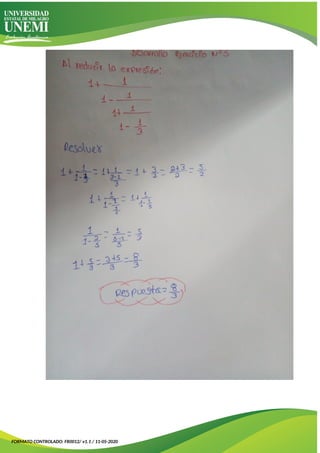 UNIVERSIDAD
ESTATAL DE MILAGRO
UNEMI
Desarrollo Ejercicio N°5
Al reducir la expresión:
1+ 1
1- 1
1+ 1
1- 1/3
Resolver
1+ 1/(1-1/3) = 1+ 1/((3-1)/3) = 1+ 3/2 = (2+3)/2 = 5/2
1/(1-2/5) = 1/((5-2)/5) = 5/3
1+ 5/3 = (3+5)/3 = 8/3
Respuesta = 8/3
FORMATO CONTROLADO: FR0012/ v1.1 / 11-05-2020